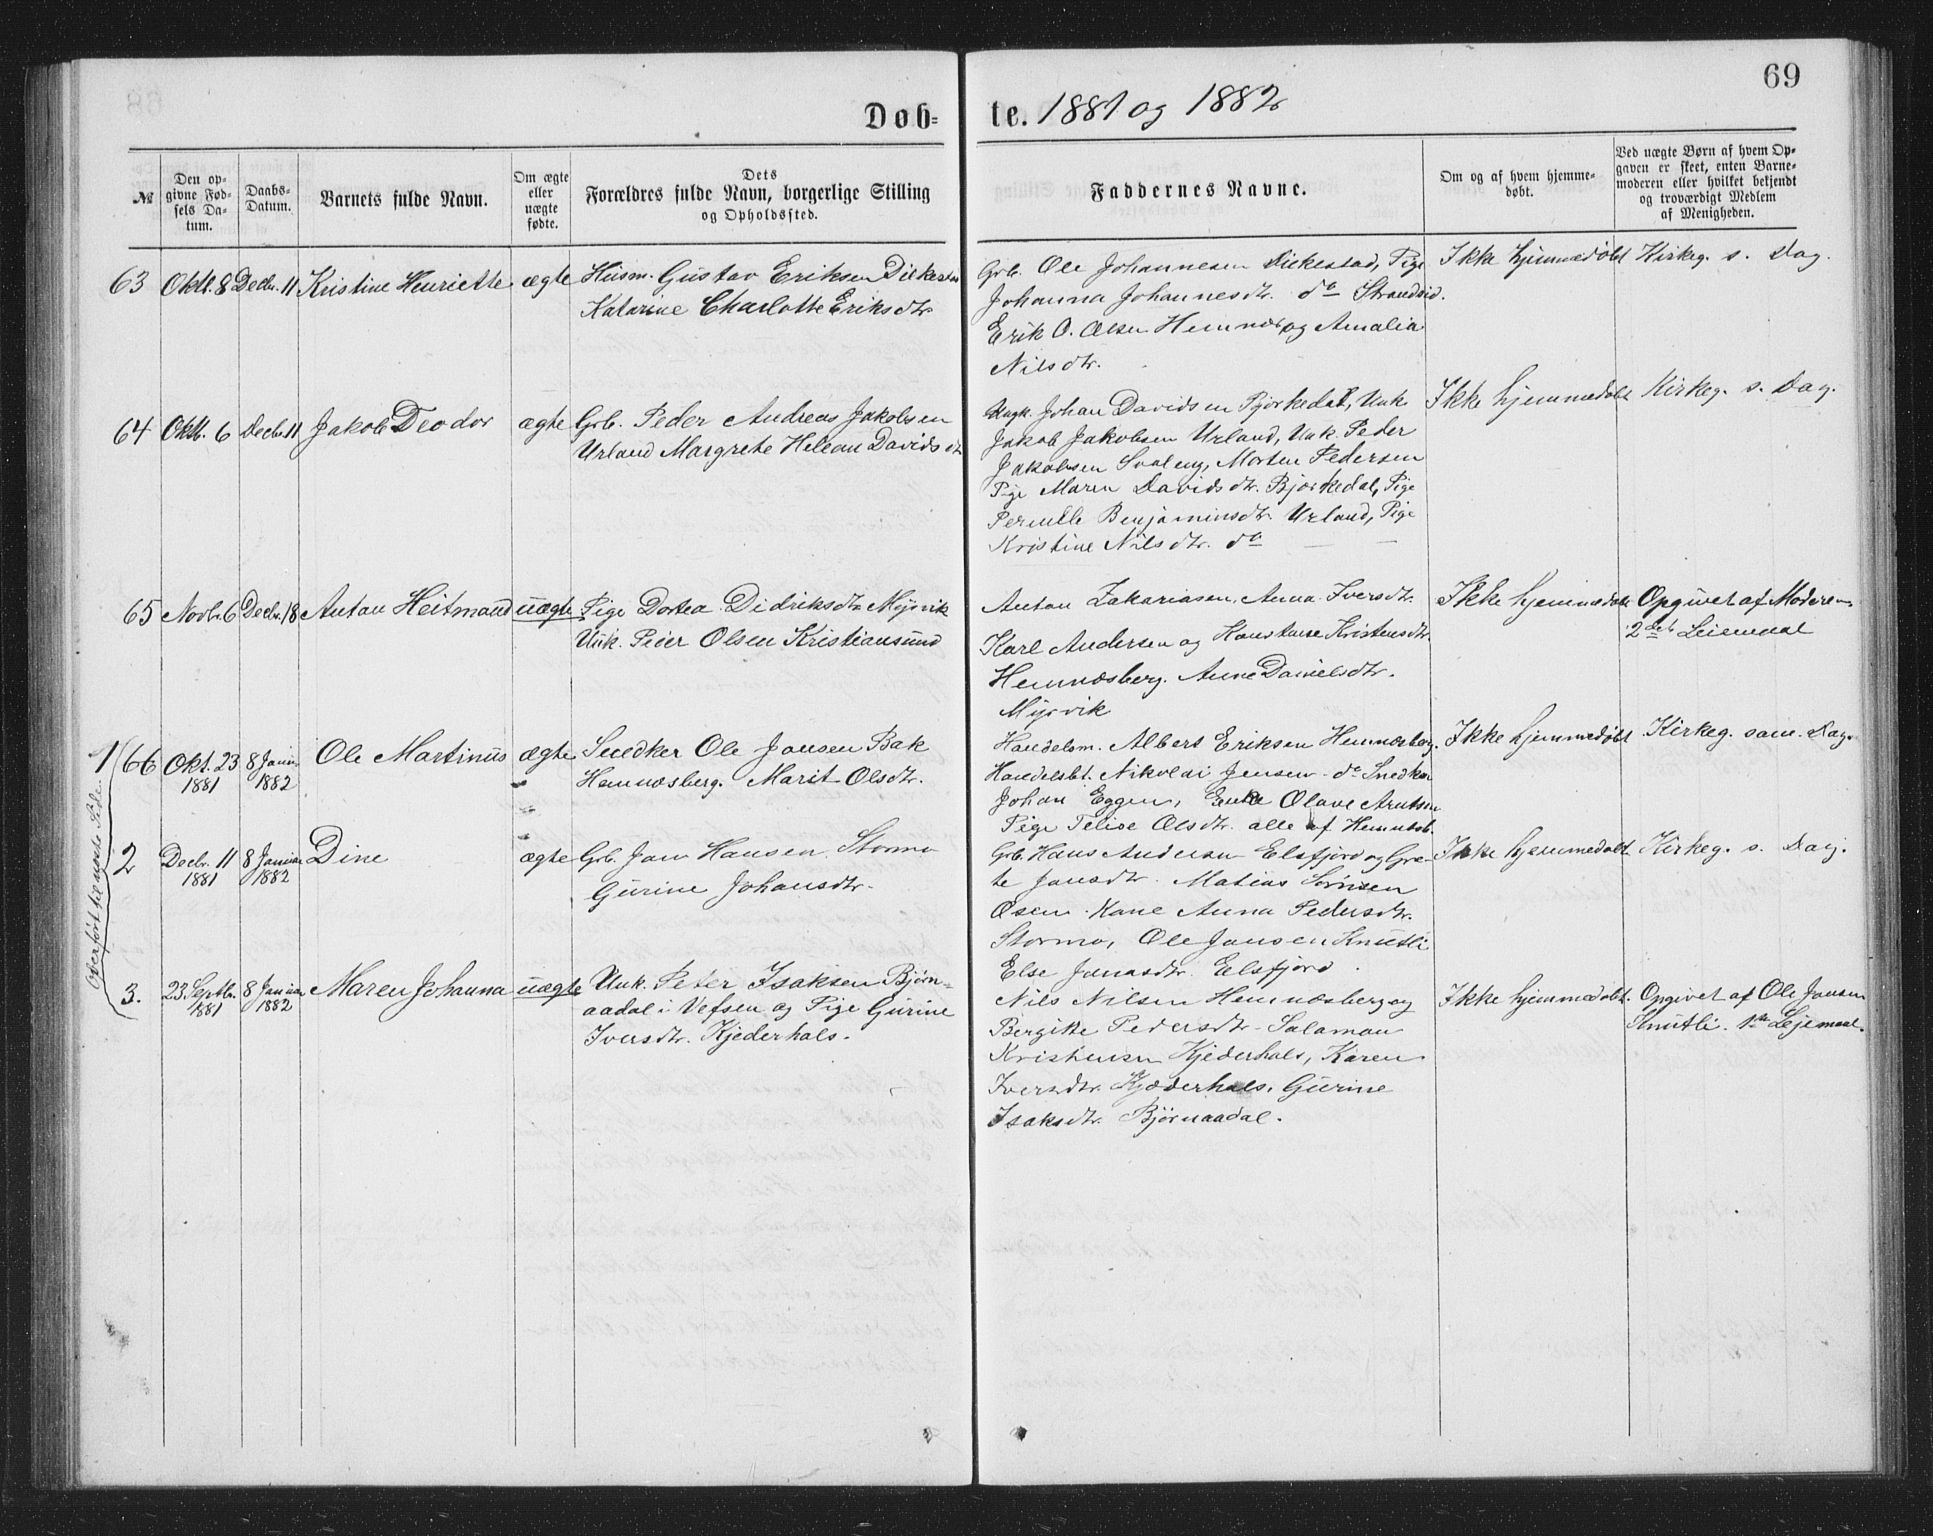 69
Døb- te. 1881 og 1882
№
Den op-
givne Fød-
sels Da-
tum.
Daabs-
Datum.
Barnets fulde Navn.
Om ægte
eller
uægte
fødte.
Dets
Forældres fulde Navn, borgerlige Stilling
og Opholdssted.
Faddernes Navne.
Om og af hvem hjemme-
døbt.
Ved uægte Børn af hvem Op-
gaven er skeet, enten Barne-
moderen eller hvilket bekjendt
og troværdigt Medlem
af Menigheden.
63 Oktl. 8 Decbr. 11 Kristine Henriette ægte Husm. Gustav Eriksen Dilkestad
Katarine Charlotte Eriksdtr
Grb. Ole Johannesen Dilkestad, Pige
Johanna Johannesdtr. do Strandvid.
Erik O. Olsen Hemnæs og Amalia
Nilsdtr.
Ikke hjemmedøbt Kirkeg. s. Dag.
64 Oktb. 6 Decbr. 11 Jakob Teodor ægte Grb. Peder Andreas Jakobsen
Urland Margrete Helean Davidsdtr
Ungk. Johan Davidsen Bjørkedal, Unk.
Jakob Jakobsen Urland, Unk. Peder
Jakobsen Svaleng, Morten Pedersen
Pige Maren Davidsdtr. Bjørkedal, Pige
Pernille Benjaminsdtr Urland, Pige
Kristine Nilsdtr. do — —
Ikke hjemmedøbt Kirkeg. s. Dag.
65 Novb. 6 Decbr. 18 Anton Heitmand uægte Pige Dortea Didriksdtr Myrvik
Unk. Peder Olsen Kristiansund
Anton Zakariasen, Anna Iversdtr.
Karl Andersen og Konstanse Kristensdtr.
Hemnæsberg. Anne Danielsdtr.
Myrvik
Ikke hjemmedøbt Opgivet af Moderen
2det Leiemaal
1 (66 Okt. 23 8 Januar Ole Martinus ægte Snedker Ole Jonsen Bak
1881 1882 Hemnæsberg. Marit Olsdtr.
Handelsm. Albert Eriksen Hemnæsberg.
Handelsbt. Nikolai Jensen do Snedker
Johan Eggen, Enke Olave Arntsen
Pige Telise Olsdtr. alle af Hemnæsb.
Ikke hjemmedøbt Kirkeg. sam. Dag.
Overført til næste Side
2 Decbr. 11 8 Januar Dine ægte Grb. Jon Hansen Stormo
1881 1882 Gurine Johansdtr.
Grb. Hans Andersen Elsfjord og Gre-
te Jonsdtr. Matias Sørensen
Osen. Kone Anna Pedersdtr.
Stormo, Ole Jonsen Knutli
Else Jonasdtr. Elsfjord.
Ikke hjemmedøbt Kirkeg. s. Dag.
3. 23. Septb. 8 Januar Maren Johanna uægte Unk. Peter Isaksen Bjørn-
1881 1882 aadal i Vefsen og Pige Gurine
Iversdtr. Kjederhals.
Nils Nilsen Hemnæsberg og
Bergike Pedersdtr Salamon
Kristensen Kjederhals, Karen
Iversdtr. Kjæderhals, Gurine
Isaksdtr. Bjørnaadal.
Ikke hjemmedøbt. Opgivet af Ole Jonsen
Knutli. 1ste Lejemaal.